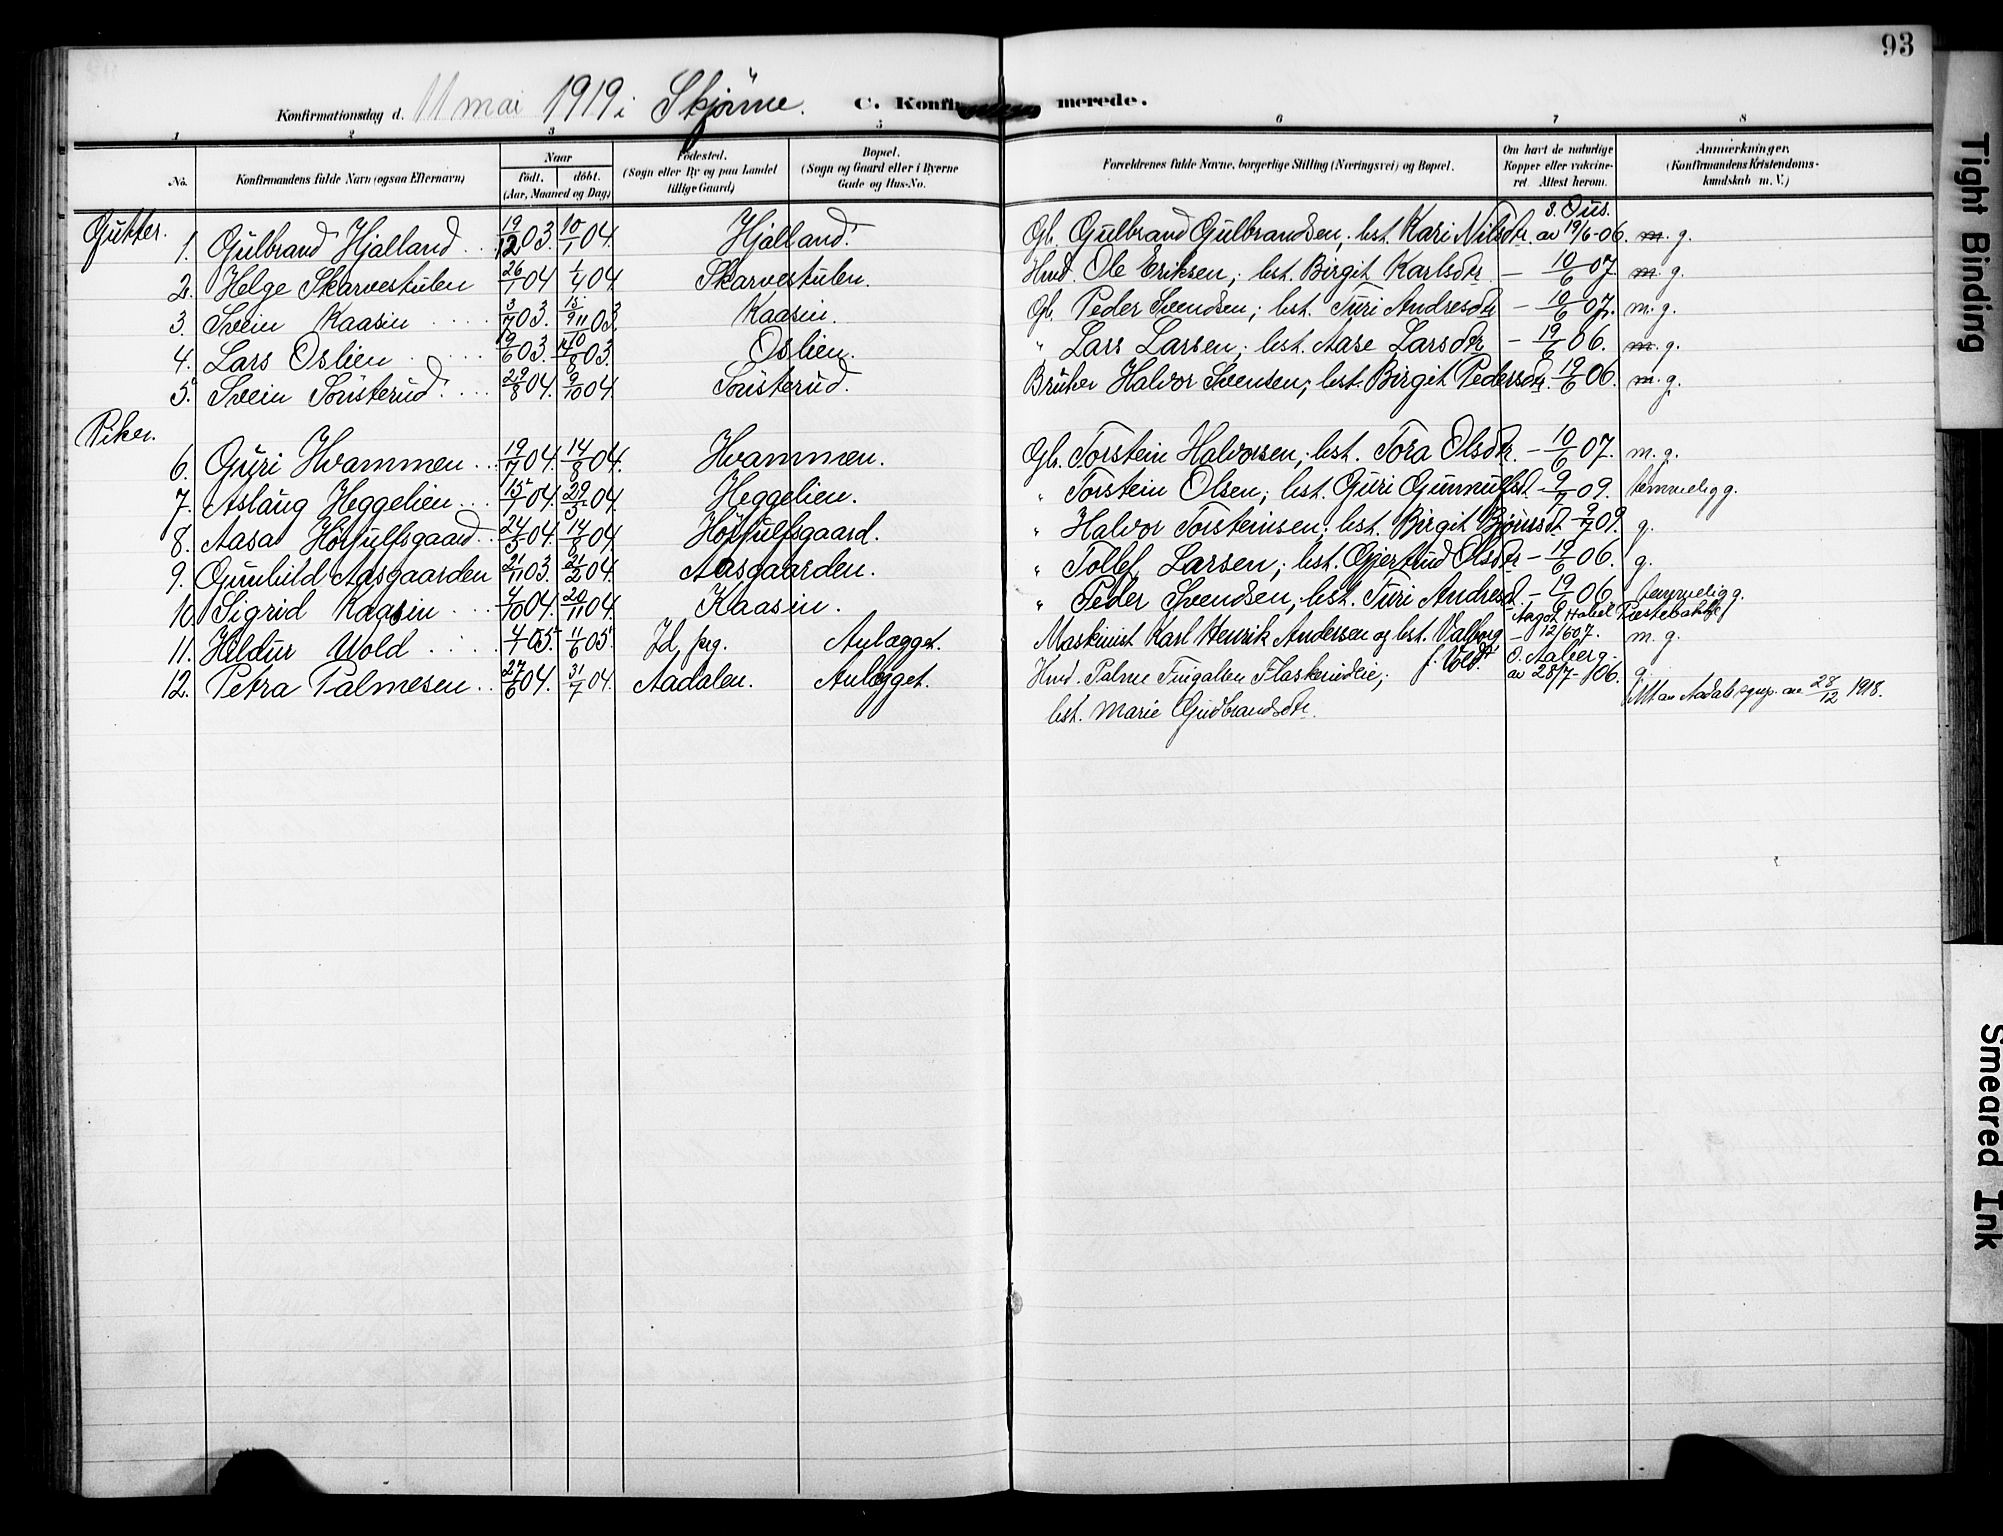 93
Konfirmationsdag d. 11 mai 1919 i Skjønne. C. Konfirmerede.
1 2 3 5 6 7 8
No. Konfirmandens fulde Navn (ogsaa Efternavn) Naar født. døbt. (Aar, Maaned og Dag) Fødested. (Sogn eller By og paa Landet tillige Gaard) Bopæl. (Sogn og Gaard eller i Byerne Gade og Hus-No. Forældrenes fulde Navne, borgerlige Stilling (Næringsvei) og Bopæl. Om havt de naturlige Kopper eller vakcineret. Attest herom. Anmerkninger. (Konfirmandens Kristendomskundskab m. V.)
Gutter.
1. Gulbrand Hjalland 19/12 03. 10/1 04. Hjalland. Gb. Gulbrand Gulbrandsen, hst. Kari Nilsdtr. av 19/6-06. m. g.
2. Helge Skarvestulen 26/1 04 1/4 04. Skarvestulen. Hmd. Ole Eriksen; hst. Birgit Karlsdtr. — 10/6 07. m. g.
3. Svein Kaasin 3/7 03. 15/9 03. Kaasin. Gb. Peder Svendsen; hst. Turi Andresdtr — 10/6 07. m. g.
4. Lars Oslien 19/6 03. 03. Oslien. " Lars Larsen; hst. Aase Larsdtr — 19/6 06. m. g.
5. Svein Sønsterud 29/8 04. 9/10 04. Sønsterud. Bruker Halvor Svensen; hst. Birgit Pedersdtr. 19/6 06. m. g.
Piker.
6. Guri Hvammen 19/7 04. 14/8 04. Hvammen. Gb. Torstein Halvorsen; hst. Tora Olsdtr. — 10/6 07. m. g.
7. Aslaug Heggelien 15/1 04. 29/3 04. Heggelien. " Torstein Olsen; hst. Guri Gunnulfsd. — 9/7 09. temmelig g.
8. Aasa Hørjulfsgaard 24/5 04. 14/8 04. Hørjulfsgaard. " Halvor Torsteinsen; hst. Birgit Bjørnsdt. 9/7 09. g.
9. Gunhild Aasgaarden 21/11 03. 21/2 04. Aasgaarden. " Tollef Larsen; hst. Gjertrud Olsdtr — 19/6 06. g.
10. Sigrid Kaasin 4/10 04. 20/11 04. Kaasin. " Peder Svendsen; hst. Turi Andresd. — 19/6 06. temmelig g.
11. Hildur Wold 4/1 05. 11/6 05 Id prg. Anlægget. Maskinist Karl Henrik Andersen og hst. Valborg f. Vold. — 12/6 07. m. g.
12. Petra Palmesen 27/6 04. 31/7 04. Aadalen. Anlægget. Hmd. Palme Flaskerudeie; O. Aaberg. av 28/7-06. g.
hst. Marie Gudbrandsdtr. 28/12 1918.
Tight Binding
Smeared Ink